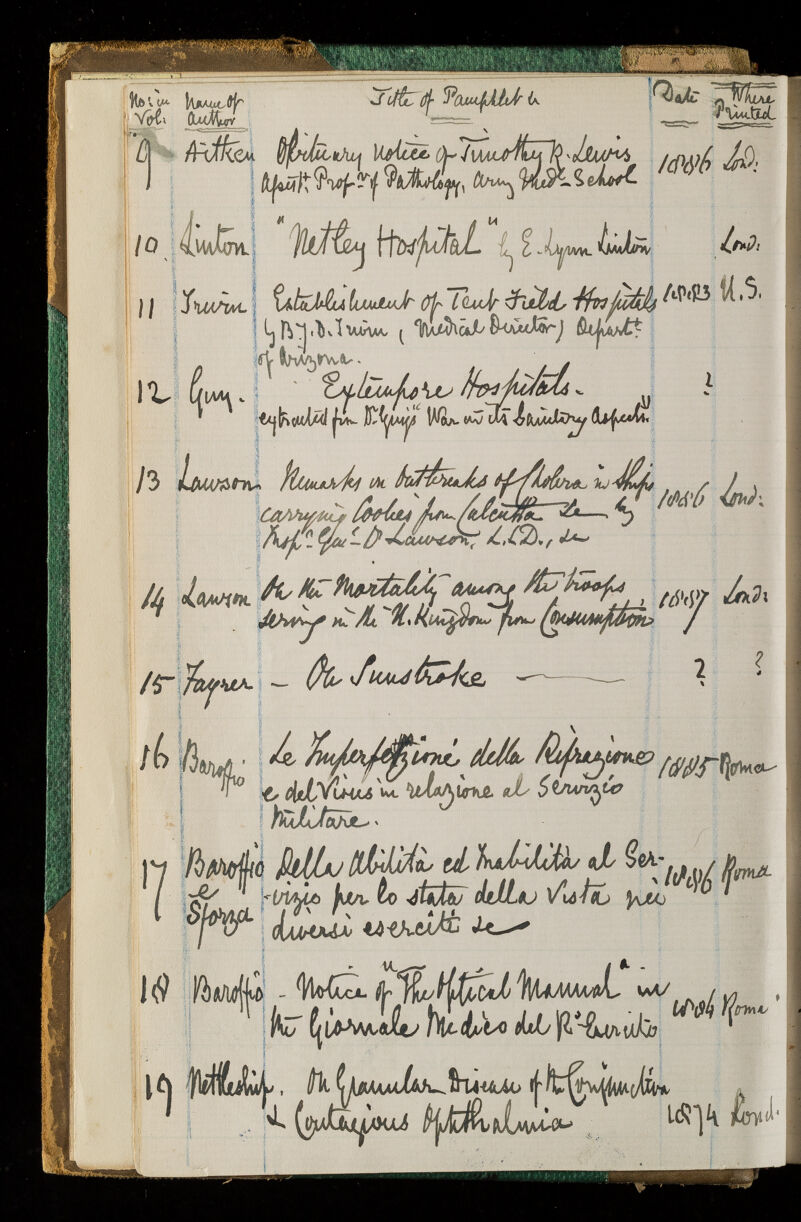 No: in Vol: Name of Author Title of Pamphlet &c Date Where Printed
9 Aitken Obituary Notice of Timothy R. Lewis 1886 Lond:
Assist: Profr of Pathology, Army Medl School
10. Linton "Netley Hospital" by E. Lynn Linton Lond:
11 Irwin Establishment of Tent Field Hospitals 1883 U.S.
by B.J.D. Irwin (Medical Director) Departt:
of Arizona.
12 Guy. Extempore Hospitals. ?
extracted from Dr Guy's "War in its Sanitary Aspects"
13 Lawson. Remarks on Outbreaks of Cholera in Ships 1886 Lond:
carrying Coolies from Calcutta &c by
Inspr Genl Dr Lawson, L.L.D., &c
14 Lawson On the Mortality among the troops 1887 Lond:
serving in the U. Kingdom from Consumption
15 Fayrer – On Sunstroke — ? ?
16 Baroffio Le Imperfezioné della Rifrazione 1885 Roma
e del Visus in relazione al Servizio
Militare.
17 Baroffio Della Abilità ed Inabilità al Ser- 1886 Roma
e -vizio per lo stato della Vista nei
Sforza diversi eserciti &c
18 Baroffio - Notice of "The Optical Manual" in 1884 Roma
the Giornale Medico del Ro Esercito
19 Nettleship. On Granular Disease of the Conjunctiva
& Contagious Ophthalmia 1874 Lond.